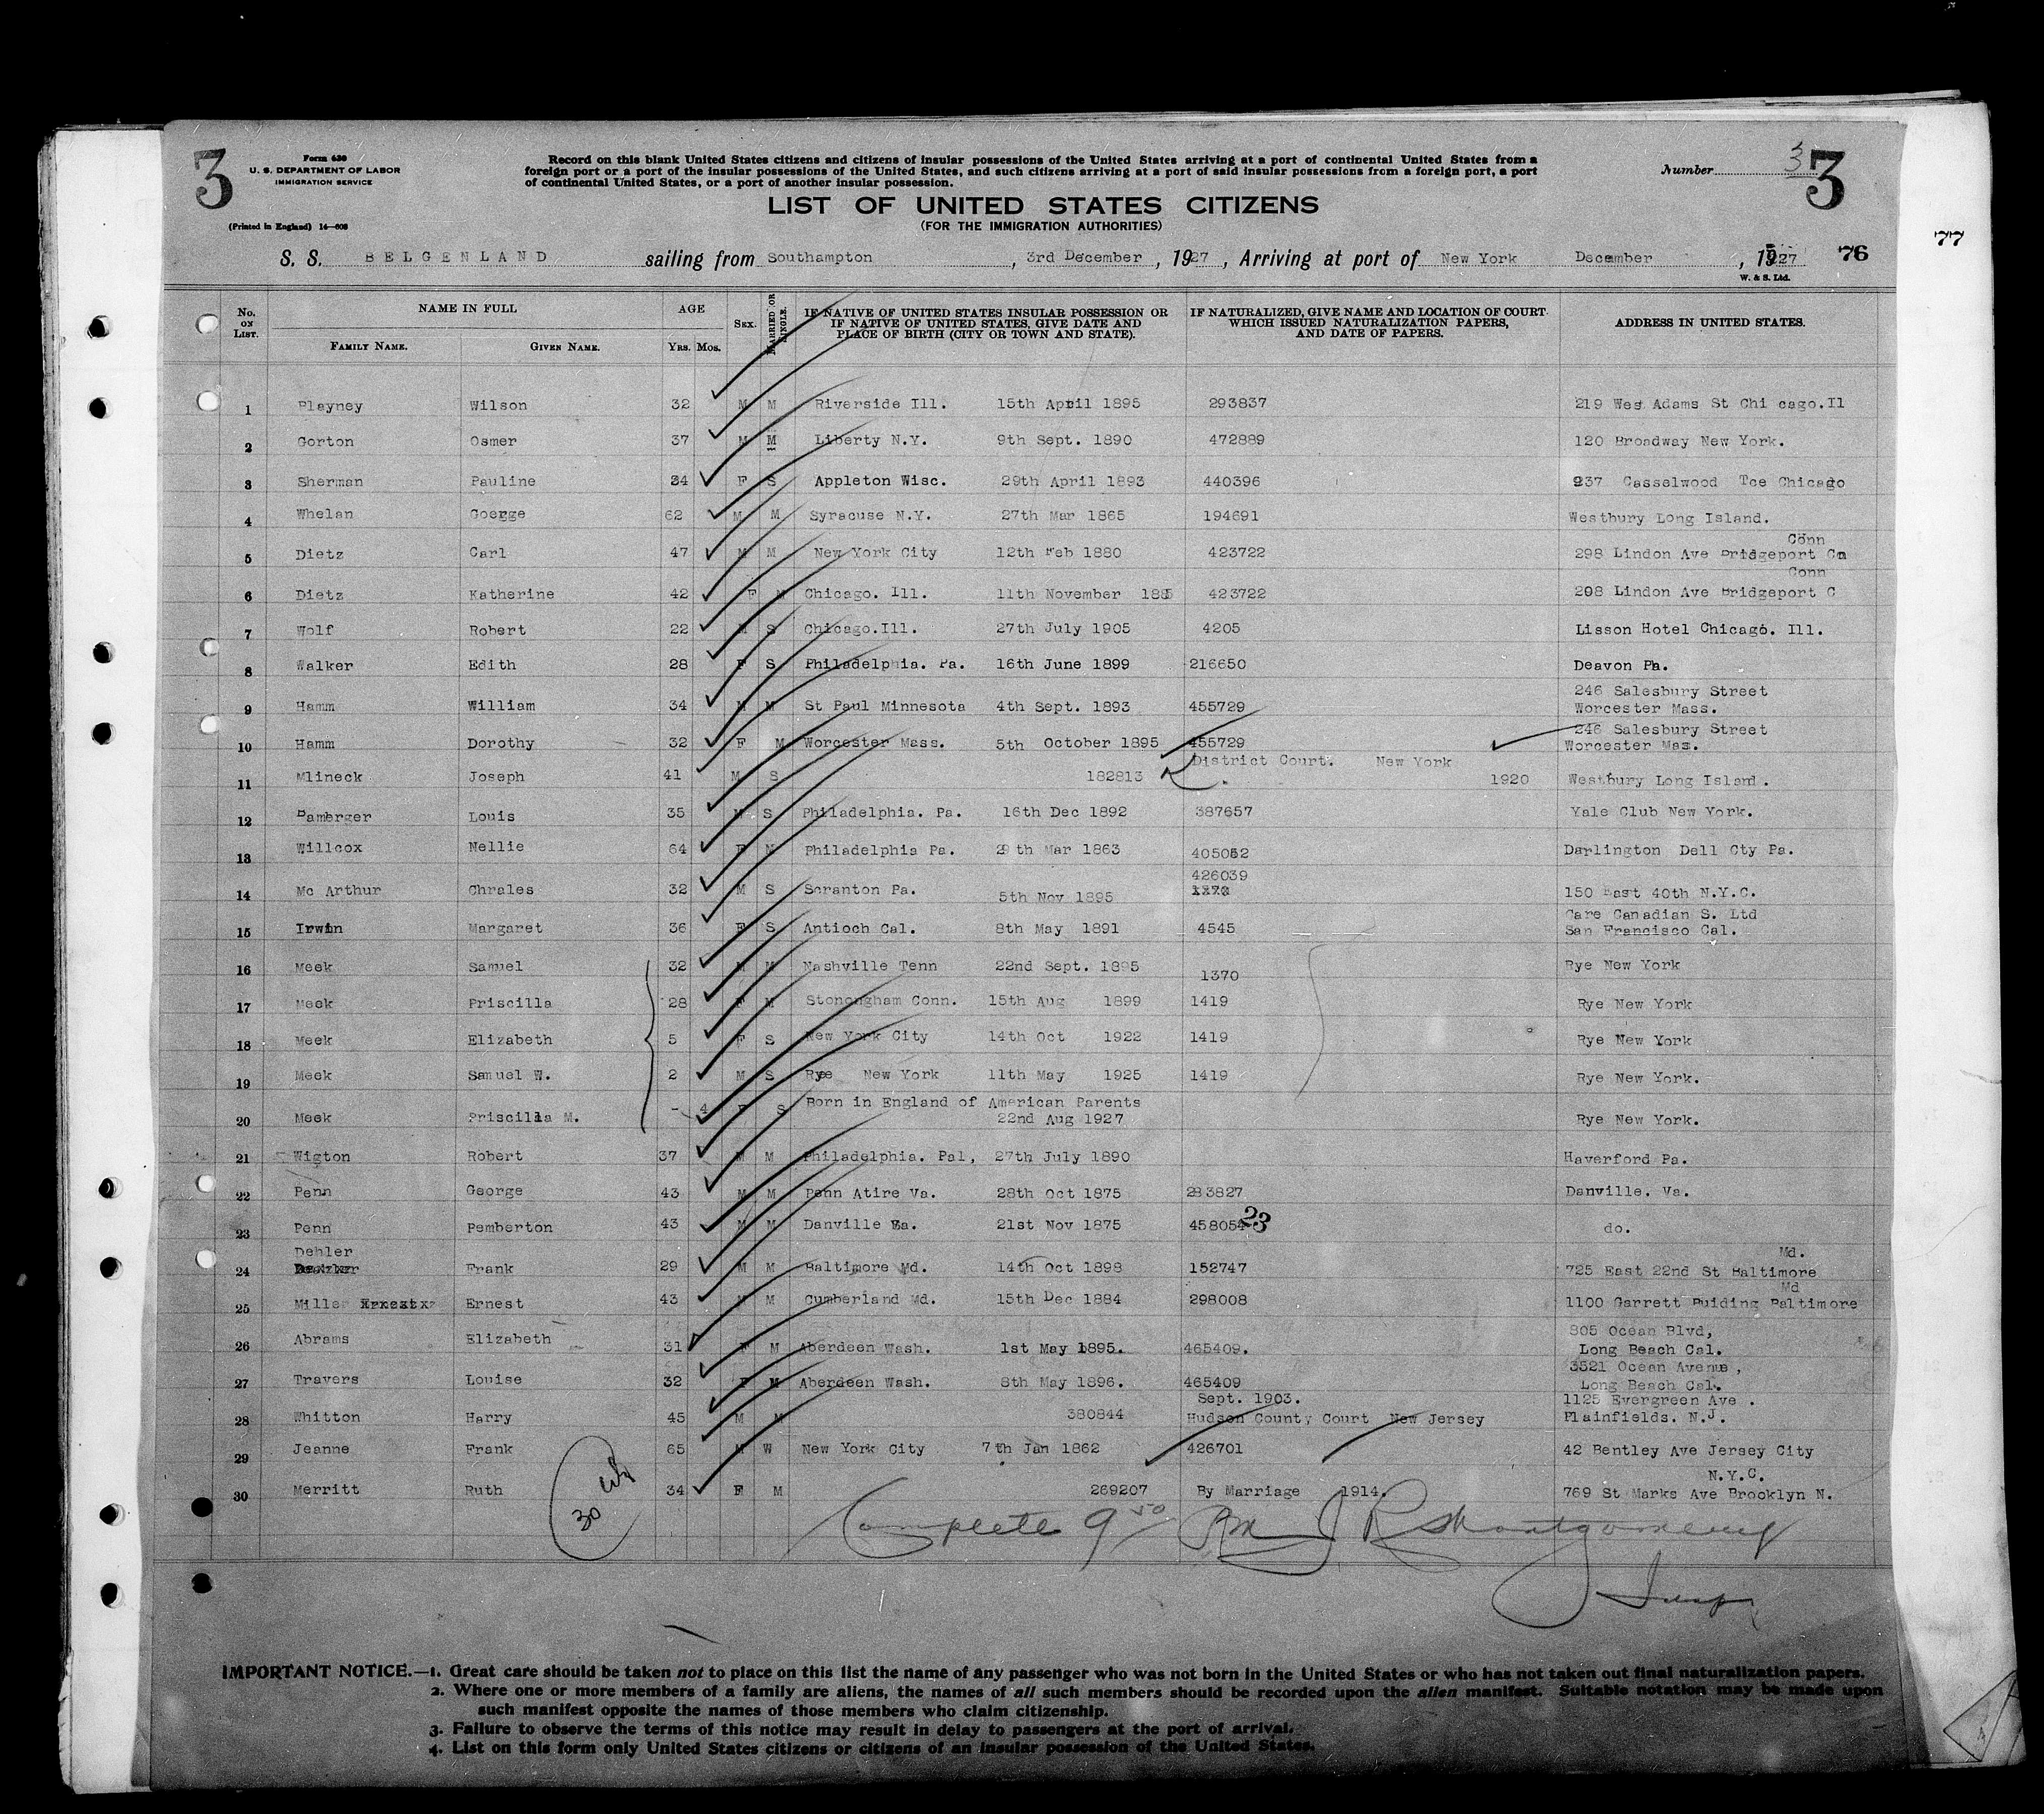 3
Form 630
U. S. DEPARTMENT OF LABOR
IMMIGRATION SERVICE
(Printed in England) 14—608
Record on this blank United States citizens and citizens of insular possessions of the United States arriving at a port of continental United States from a
foreign port or a port of the insular possessions of the United States, and such citizens arriving at a port of said insular possessions from a foreign port, a port
of continental United States, or a port of another insular possession.
Number 3 3
LIST OF UNITED STATES CITIZENS
(FOR THE IMMIGRATION AUTHORITIES)
S. S. BELGENLAND sailing from Southampton, 3rd December, 1927, Arriving at port of New York December, 1927 76 77
W. & S. Ltd.
No. on List. NAME IN FULL AGE Sex. Married or Single. IF NATIVE OF UNITED STATES INSULAR POSSESSION OR IF NATIVE OF UNITED STATES, GIVE DATE AND PLACE OF BIRTH (CITY OR TOWN AND STATE). IF NATURALIZED, GIVE NAME AND LOCATION OF COURT WHICH ISSUED NATURALIZATION PAPERS, AND DATE OF PAPERS. ADDRESS IN UNITED STATES.
Family Name. Given Name. Yrs. Mos.
1 Playney Wilson 32 M M Riverside Ill. 15th April 1895 293837 219 Wes Adams St Chi cago.Il
2 Gorton Osmer 37 M M Liberty N.Y. 9th Sept. 1890 472889 120 Broadway New York.
3 Sherman Pauline 34 F S Appleton Wisc. 29th April 1893 440396 937 Casselwood Tce Chicago
4 Whelan Goerge 62 M M Syracuse N.Y. 27th Mar 1865 194691 Westbury Long Island.
Conn
5 Dietz Carl 47 M M New York City 12th Feb 1880 423722 298 Lindon Ave Bridgeport Cn
Conn
6 Dietz Katherine 42 F M Chicago. Ill. 11th November 1885 423722 298 Lindon Ave Bridgeport C
7 Wolf Robert 22 M S Chicago.Ill. 27th July 1905 4205 Lisson Hotel Chicago. Ill.
8 Walker Edith 28 F S Philadelphia. Pa. 16th June 1899 216650 Deavon Pa.
246 Salesbury Street
9 Hamm William 34 M M St Paul Minnesota 4th Sept. 1893 455729 Worcester Mass.
246 Salesbury Street
10 Hamm Dorothy 32 F M Worcester Mass. 5th October 1895 455729 Worcester Mas.
District Court. New York
11 Mlineck Joseph 41 M S 182813 1920 Westbury Long Island.
12 Bamberger Louis 35 M S Philadelphia. Pa. 16th Dec 1892 387657 Yale Club New York.
13 Willcox Nellie 64 F M Philadelphia Pa. 29th Mar 1863 405052 Darlington Dell Cty Pa.
426039
14 Mc Arthur Chrales 32 M S Scranton Pa. 5th Nov 1895 150 East 40th N.Y.C.
Care Canadian S. Ltd
15 Irwin Margaret 36 F S Antioch Cal. 8th May 1891 4545 San Francisco Cal.
16 Meek Samuel 32 M M Nashville Tenn 22nd Sept. 1895 1370 Rye New York
17 Meek Priscilla 28 F M Stonongham Conn. 15th Aug 1899 1419 Rye New York
18 Meek Elizabeth 5 F S New York City 14th Oct 1922 1419 Rye New York
19 Meek Samuel W. 2 M S Rye New York 11th May 1925 1419 Rye New York.
Born in England of American Parents
20 Meek Priscilla M. - 4 F S 22nd Aug 1927 Rye New York.
21 Wigton Robert 37 M M Philadelphia. Pal, 27th July 1890 Haverford Pa.
22 Penn George 43 M M Penn Atire Va. 28th Oct 1875 283827 Danville. Va.
23 Penn Pemberton 43 M M Danville Va. 21st Nov 1875 458054 23 do.
Dehler Md.
24 Frank 29 M M Baltimore Md. 14th Oct 1898 152747 725 East 22nd St Baltimore
Md
25 Mille Ernest 43 M M Cumberland Md. 15th Dec 1884 298008 1100 Garrett Buiding Baltimore
805 Ocean Blvd,
26 Abrams Elizabeth 31 F M Aberdeen Wash. 1st May 1895. 465409. Long Beach Cal.
3521 Ocean Avenue,
27 Travers Louise 32 F M Aberdeen Wash. 8th May 1896. 465409 Long Beach Cal.
Sept. 1903. 1125 Evergreen Ave.
28 Whitton Harry 45 M M 380844 Hudson County Court New Jersey Plainfields. N.J.
29 Jeanne Frank 65 M W New York City 7th Jan 1862 426701 42 Bentley Ave Jersey City
N.Y.C.
30 Merritt Ruth 34 F M 269207 By Marriage 1914. 769 St Marks Ave Brooklyn N.
30
Complete 9 50 PM J R Montgomery
Insp
IMPORTANT NOTICE.—1. Great care should be taken not to place on this list the name of any passenger who was not born in the United States or who has not taken out final naturalization papers.
2. Where one or more members of a family are aliens, the names of all such members should be recorded upon the alien manifest. Suitable notation may be made upon
such manifest opposite the names of those members who claim citizenship.
3. Failure to observe the terms of this notice may result in delay to passengers at the port of arrival.
4. List on this form only United States citizens or citizens of an insular possession of the United States.